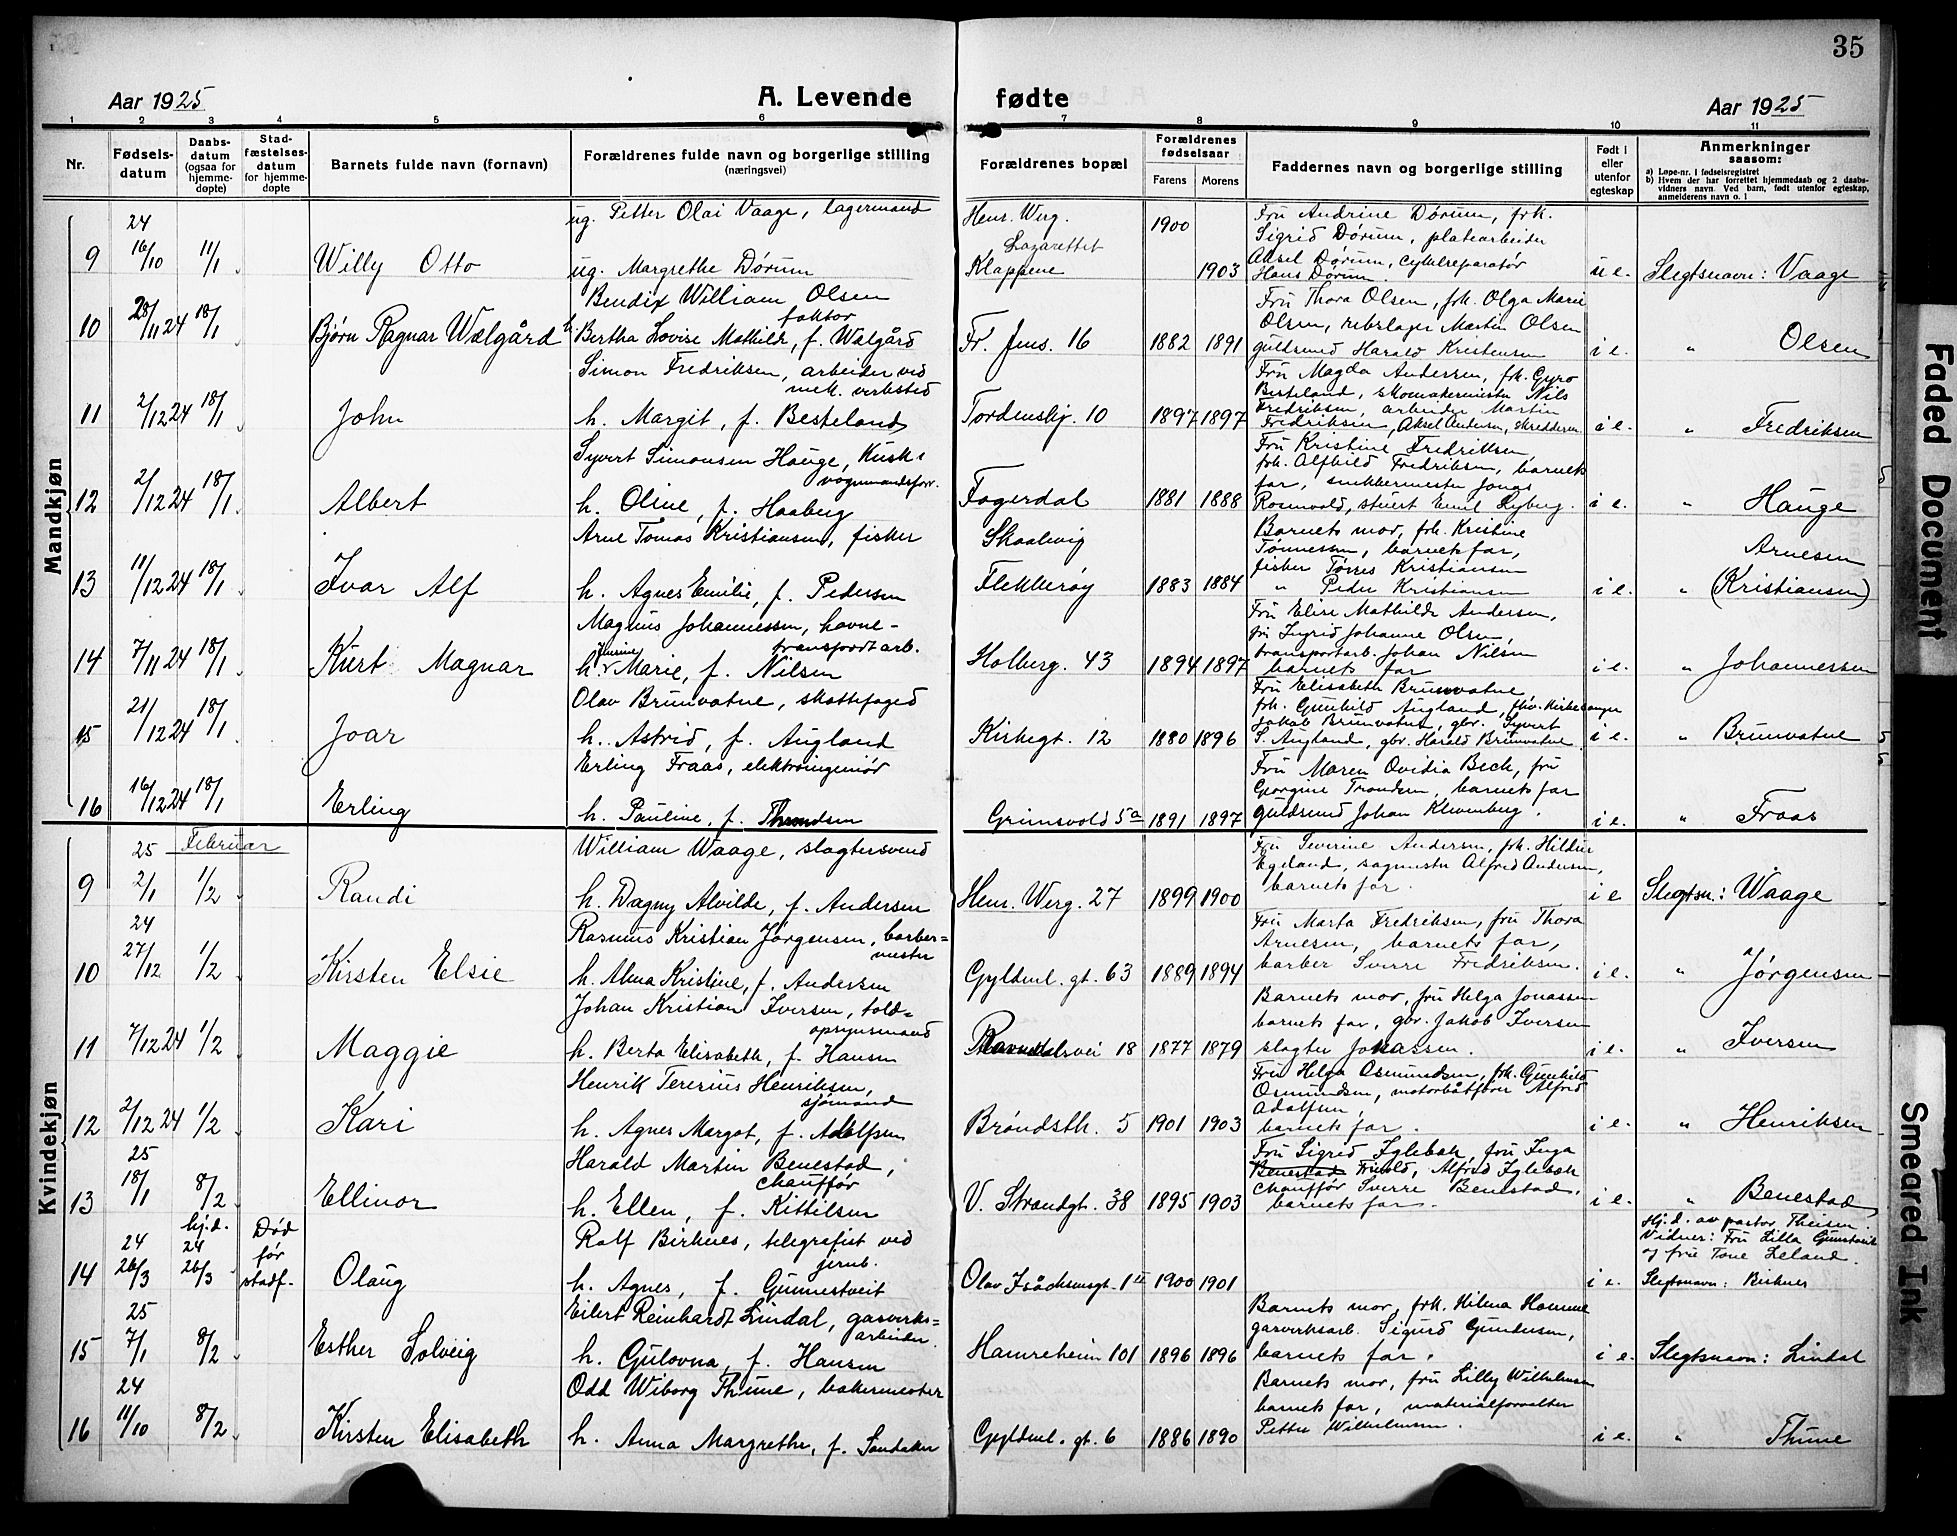 35
Aar 1925 A. Levende fødte Aar 1925
1 2 3 4 5 6 7 8 9 10 11
Nr. Fødselsdatum Daabsdatum (ogsaa for hjemmedøpte) Stadfæstelsesdatum for hjemmedøpte Barnets fulde navn (fornavn) Forældrenes fulde navn og borgerlige stilling (næringsvei) Forældrenes bopæl Forældrenes fødselsaar Farens Morens Faddernes navn og borgerlige stilling Født i eller utenfor egteskap Anmerkninger saasom:
a) Løpe-nr. i fødselsregistret
b) Hvem der har forrettet hjemmedaab og 2 daabsvidners navn. Ved barn, født utenfor egteskap, anmelderens navn o. l
Mandkjøn
24 ug. Petter Olai Vaage, lagermand Henr. Werg. 1900 Fru Andrine Dørum, frk.
Lazarettet Sigrid Dørum, platearbeider
9 16/10 11/1 Willy Otto ug. Margrethe Dørum Klappene 1903 Aksel Dørum, cykelreparatør Hans Dørum u e. Slegtsnavn: Vaage
Bendix William Olsen faktor Fru Thora Olsen, frk. Olga Marie
Olsen, rebslager Martin Olsen
10 28/11 24 18/1 Bjørn Ragnar Wælgård h. Bertha Lovise Mathilde, f. Wælgård Fr. Jens. 16 1882 1891 guldsmed Harald Kristensen i e. " Olsen
Simon Fredriksen, arbeider ved mek. verksted Fru Magda Andersen, frk. Gyro
Besteland, skomakermester Nils
Fredriksen, arbeider Martin
11 2/12 24 18/1 John h. Margit, f. Besteland Tordenskj. 10 1897 1897 Fredriksen, Aksel Andersen, skreddersv. i e. " Fredriksen
Syvert Simonsen Hauge, kusk i vognmandsforr. Fru Kristine Fredriksen,
frk. Alfhild Fredriksen, barnets
far, snekkermester Jonas
12 2/12 24 18/1 Albert h. Oline, f. Haaberg Fagerdal 1881 1888 Romvold, stuert Emil Ryberg. i e. " Hauge
Arne Tomas Kristiansen, fisker Skaalevig Barnets mor, frk. Kristine
Tønnessen, barnets far, Arnesen
fisker Tørres Kristiansen
13 11/12 24 18/1 Ivar Alf h. Agnes Emilie, f. Pedersen Flekkerøy 1883 1884 " Peder Kristiansen i e. " (Kristiansen)
Magnus Johannessen, havnetransportarb. Fru Elise Mathilde Andersen,
fru Ingrid Johanne Olsen,
transportarb. Johan Nilsen
14 7/11 24 18/1 Kurt Magnar h. Jensine Marie, f. Nilsen Holberg. 43 1894 1897 barnets far i e. " Johannessen
Olav Brunvatne, skattefoged Fru Elisabeth Brunvatne,
frk. Gunhild Augland, fhv. kirkesanger
Jakob Brunvatne, gbr. Syvert
15 21/12 24 18/1 Joar h. Astrid, f. Augland Kirkegt. 12 1880 1896 S. Augland, gbr. Harald Brunvatne. i e. " Brunvatne
Erling Fraas, elektroingeniør Fru Maren Ovidia Bech, fru
Georgine Trondsen, barnets far
16 16/12 24 18/1 Erling h. Pauline, f. Throndsen Grimsvold 5a 1891 1897 guldsmed Johan Klevenberg. i e. " Fraas
Kvindekjøn
25 Februar William Waage, slagtersvend Fru Severine Andersen, frk. Hildur
Egeland, sagmester Alfred Andersen,
9 2/1 1/2 Randi h. Dagny Alvilde, f. Andersen Henr. Werg. 27 1899 1900 barnets far. i e Slegtsn.: Waage
24 Rasmus Kristian Jørgensen, barbermester Fru Marta Fredriksen, fru Thora
Arnesen, barnets far,
10 27/12 1/2 Kirsten Elsie h. Alma Kristine, f. Andersen Gyldenl. gt. 63 1889 1894 barber Sverre Fredriksen. i e. " Jørgensen
Johan Kristian Iversen, toldopsynsmand Barnets mor, fru Helga Jonassen
barnets far, gbr. Jakob Iversen
11 7/12 24 1/2 Maggie h. Berta Elisabeth, f. Hansen Ravnedalsvei 18 1877 1879 slagter Jonassen. i e. " Iversen
Henrik Tererius Henriksen, sjømand Fru Helga Osmundsen, frk. Gunhild
Osmundsen, motorbåtfører Alfred
Adolfsen,
12 2/12 24 1/2 Kari h. Agnes Margot, f. Adolfsen Brøndsth. 5 1901 1903 barnets far. i e. " Henriksen
25 Harald Martin Benestad, chauffør Fru Sigrid Iglebæk, fru Inga
Benestad Frivold, Alfred Iglebæk
chauffør Sverre Benestad,
13 18/1 8/2 Ellinor h. Ellen, f. Kittilsen V. Strandgt. 38 1895 1903 barnets far. i e. " Benestad
hj.d. Død Rolf Birknes, telegrafist ved jernb. Hj. d. av pastor Theisen.
24 24 før Vidner: Fru Lilla Gunstveit
og frue Tone Leland.
14 26/3 26/3 stadf. Olaug h. Agnes, f. Gunnestveit 1900 1901 i e. Slegtsnavn: Birknes
25 Eilert Reinhardt Lindal, gasverksarbeider. Barnets mor, frk. Hilma Hamme
gasverksarb. Sigurd Gundersen,
15 7/1 8/2 Esther Solveig h. Gulovna, f. Hansen Hamreheim 101 1896 1896 barnets far. i e. Slegtsnavn: Lindal
24 Odd Wiborg Thune, bakermester Barnets mor, fru Lilly Wilhelmsen
barnets far, materialforvalter
16 11/10 8/2 Kirsten Elisabeth h. Anna Margrethe, f. Sandaker Gyldenl. gt. 6 1886 1890 Petter Wilhelmsen. i e. " Thune
Faded Document
Smeared Ink